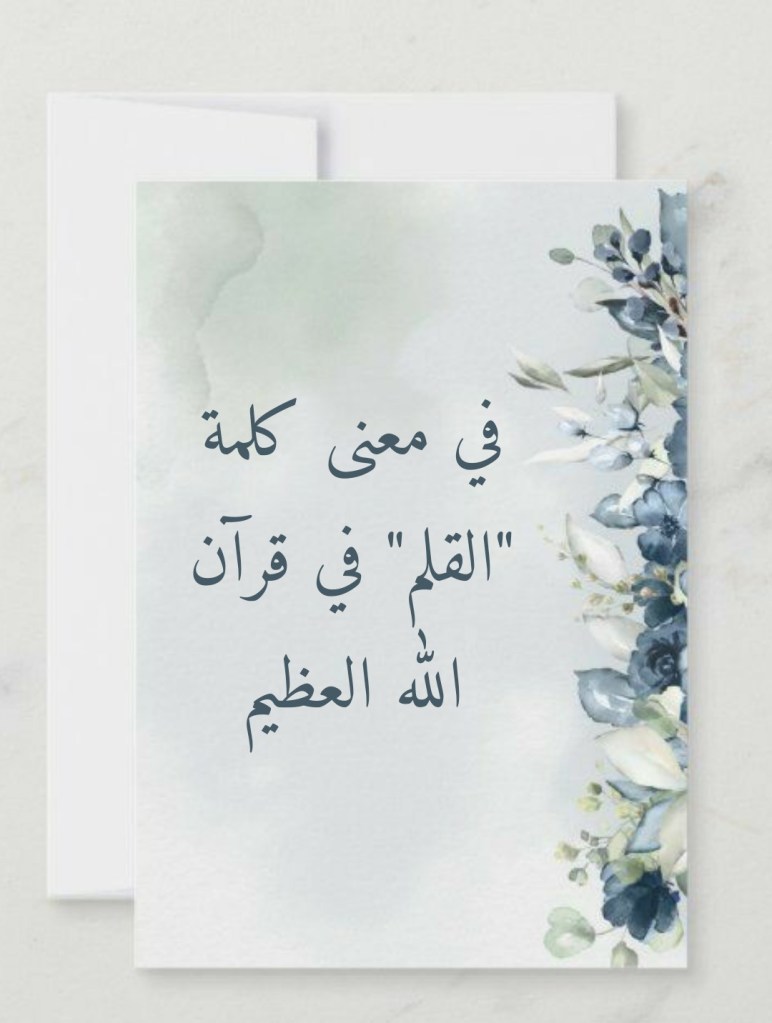 في معنى كلمة
"القلم" في قرآن
الله العظيم